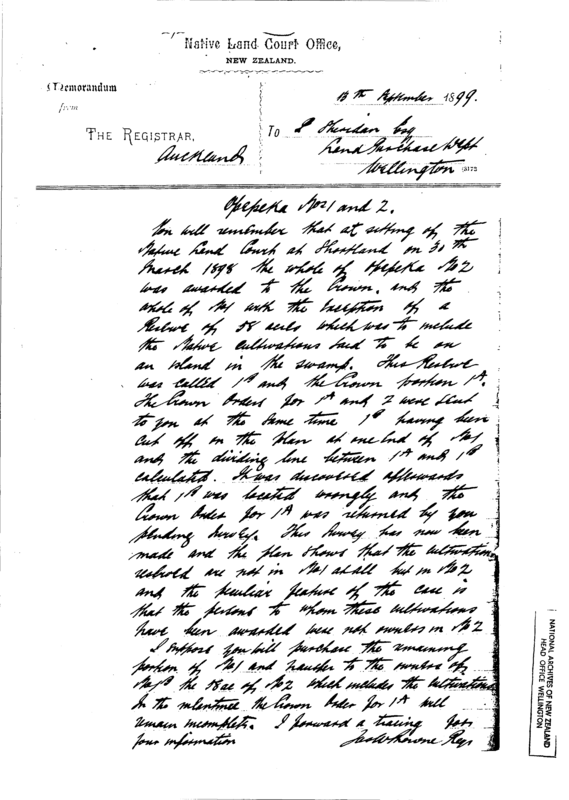 Native Land Court Office,
NEW ZEALAND.
Memorandum
from
THE REGISTRAR,
Auckland
13th September 1899.
To P Sheridan Esq
Land Purchase Dept
Wellington
Opepeka Nos 1 and 2.
You will remember that at sitting of the
Native Land Court at Shortland on 30th
March 1898 the whole of Opepeka No 2
was awarded to the Crown, and the
whole of No 1 with the exception of a
Reserve of 58 acres which was to include
the Native cultivations said to be on
an island in the swamp. This Reserve
was called 1B and the Crown portion 1A.
The Crown Orders for 1A and 2 were sent
to you at the same time 1B having been
cut off on the plan at one end of No 1
and the dividing line between 1A and 1B
calculated. It was discovered afterwards
that 1B was located wrongly and the
Crown Order for 1A was returned by you
pending survey. This Survey has now been
made and the plan shows that the cultivations
reserved are not in No 1 at all but in No 2
and the peculiar feature of the case is
that the persons to whom these cultivations
have been awarded were not owners in No 2
I suppose you will purchase the remaining
portion of No 1 and transfer to the owners of
No 1B the 58 ac of No 2 which includes the cultivations
In the meantime the Crown Order for 1A will
remain incomplete. I forward a tracing for
your information
Jas W Browne Regr
NATIONAL ARCHIVES OF NEW ZEALAND
HEAD OFFICE WELLINGTON